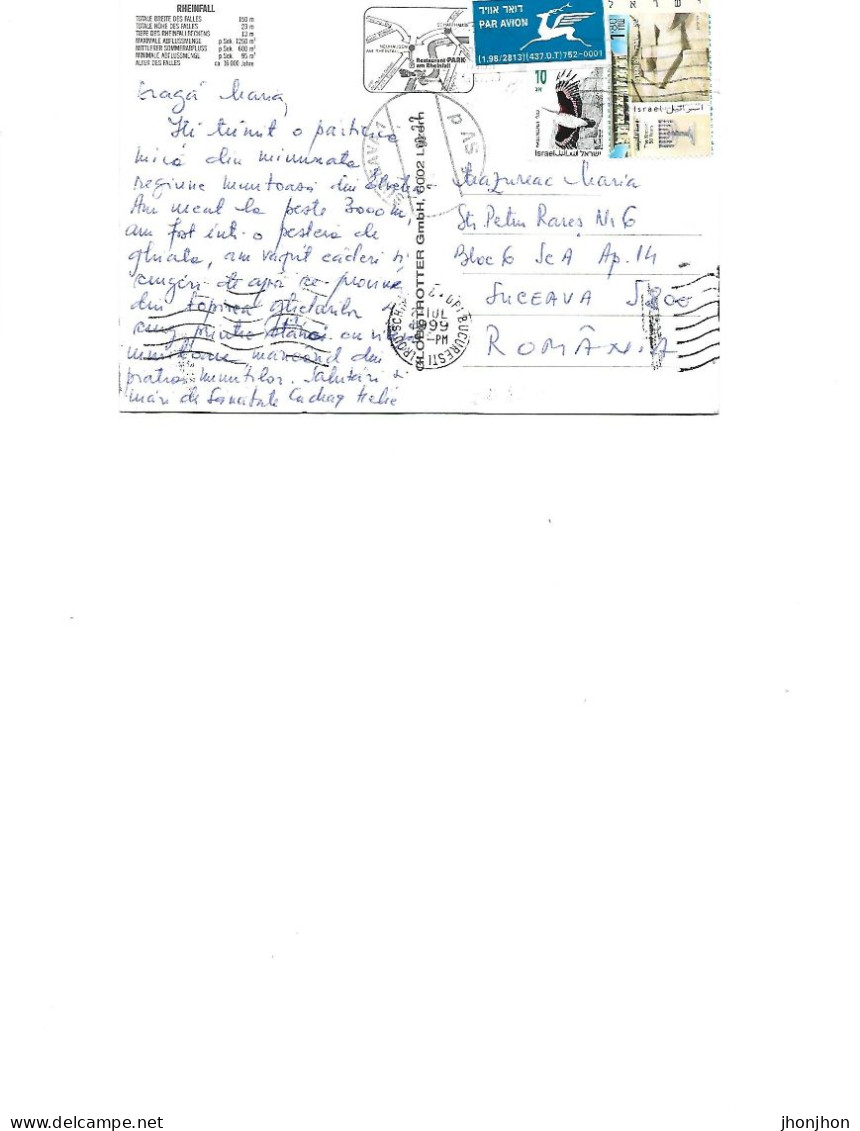 RHEINFALL
TOTALE BREITE DES FALLES 150 m
TOTALE HÖHE DES FALLES 23 m
TIEFE DES RHEINFALLBECKENS 13 m
MAXIMALE ABFLUSSMENGE p Sek. 1250 m³
MITTLERER SOMMERABFLUSS p Sek. 600 m³
MINIMALE ABFLUSSMENGE p Sek. 95 m³
ALTER DES FALLES ca
Restaurant PARK
am Rheinfall
דואר אוויר
PAR AVION
(1.98/2813)(437.0.T)752-0001
10
Israel
ישראל
1.80
Israel
اسرائيل
Dragă Maria,
Iți trimit o părticică
mică din minunata
regiune muntoasă din
Am urcat la peste 3000 m,
am fost într-o peșteră de
gheață, am văzut căderi și
curgeri de apă ce provine
din topirea ghețarilor și
curg printre stânci cu
din
piatra munților. Salutări și
mări de Sănătate
GLOBETROTTER GmbH, 6002 Luzern
BUCURESTI
IUL
999
-PM
Mazureac Maria
Str Petru Rareș Nr 6
Bloc 6 Sc A Ap. 14
SUCEAVA 5800
ROMÂNIA
jhonjhon